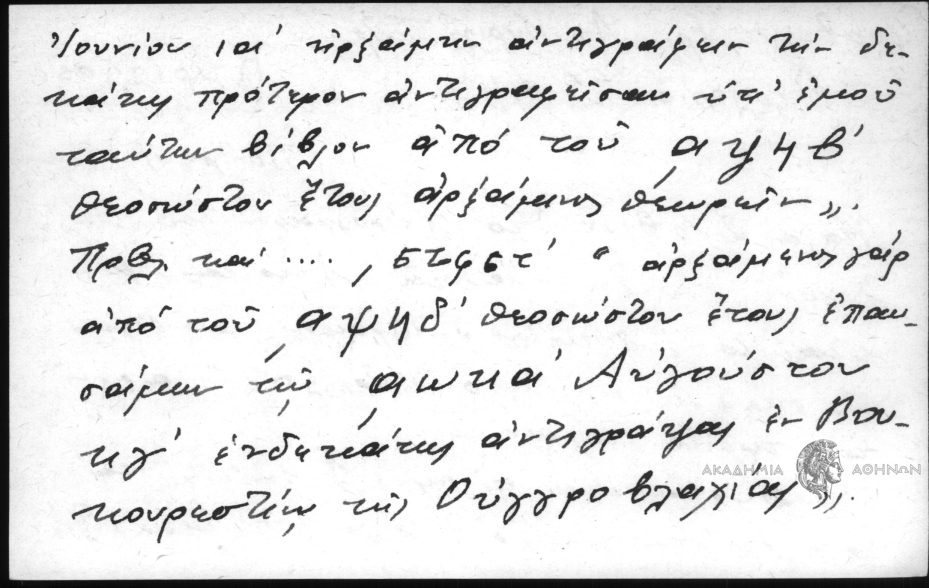 Ἰουνίου ια' ἠρξάμην ἀντιγράφειν τὴν δε-
κάτης πρότερον ἀντιγραφείσαν ὑπ' ἐμοῦ
ταύτην βίβλον ἀπό τοῦ ͵αψηβ'
θεοσώστου ἔτους ἀρξάμενος θεωρεῖν».
Πρβλ καί .... « ἀρξάμενος γάρ
ἀπό τοῦ ͵αψηδ' θεοσώστου ἔτους ἐπαυ-
σάμην τῷ ͵αωκα' Αὐγούστου
κγ' ἑνδεκάτης ἀντιγράψας ἐν Βου-
κουρεστίῳ τῆς Οὐγγροβλαχίας».
ΑΚΑΔΗΜΙΑ ΑΘΗΝΩΝ